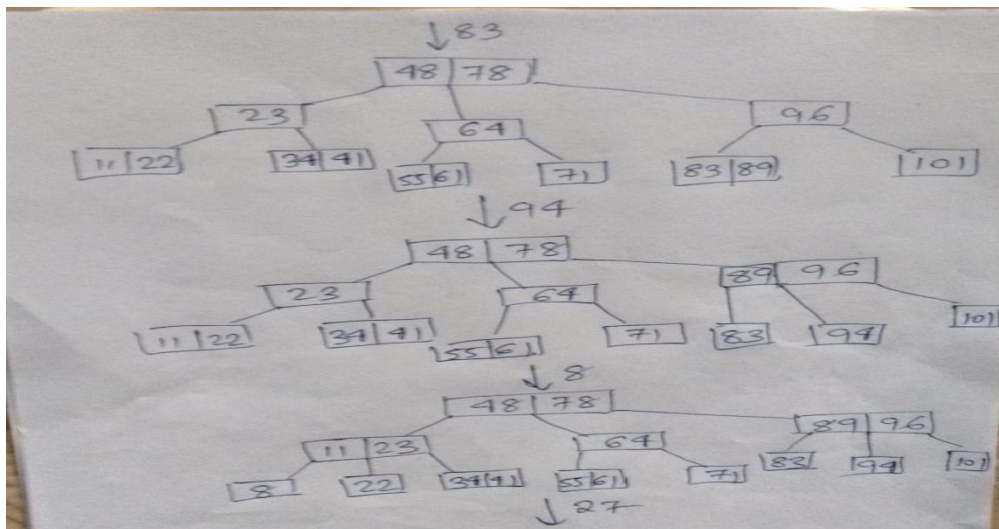 ↓83
48 78
23 64 96
11 22 34 41 55 61 71 83 89 101
↓94
48 78
23 64 89 96
11 22 34 41 55 61 71 83 94 101
↓8
48 78
11 23 64 89 96
8 22 34 41 55 61 71 83 94 101
↓27